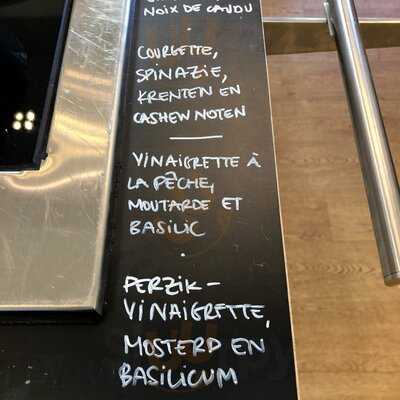 NOIX DE CAJOU
COURGETTE,
SPINAZIE,
KRENTEN EN
CASHEW NOTEN
VINAIGRETTE À
LA PÊCHE,
MOUTARDE ET
BASILIC
PERZIK-
VINAIGRETTE,
MOSTERD EN
BASILICUM